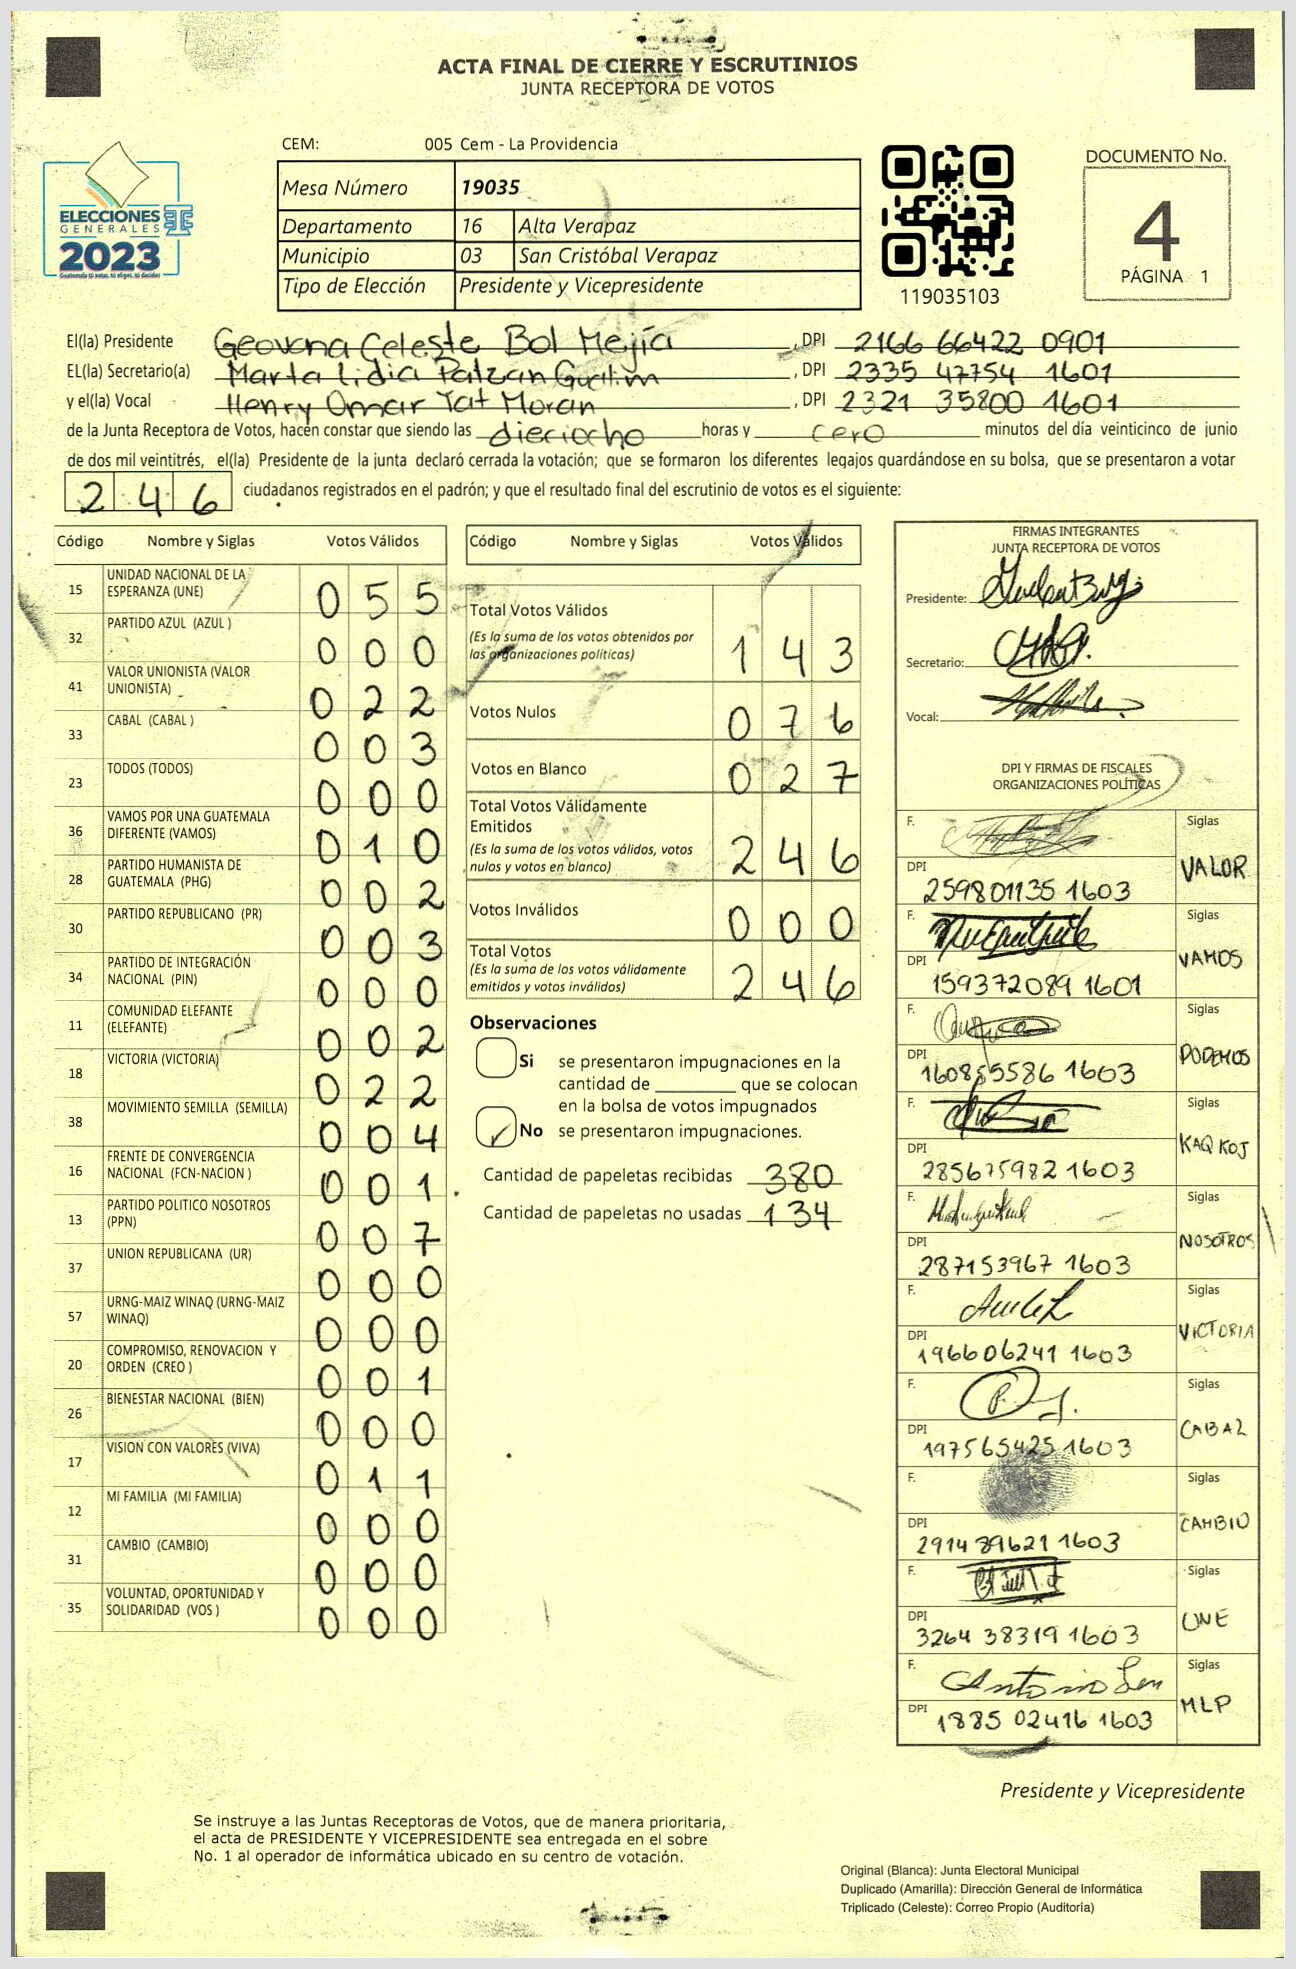 ACTA FINAL DE CIERRE Y ESCRUTINIOS
JUNTA RECEPTORA DE VOTOS
CEM: 005 Cem - La Providencia
Mesa Número 19035
Departamento 16 Alta Verapaz
Municipio 03 San Cristóbal Verapaz
Tipo de Elección Presidente y Vicepresidente
ELECCIONES
GENERALES
2023
Guatemala tú votas, tú eliges, tú decides
119035103
DOCUMENTO No.
4
PÁGINA 1
El(la) Presidente Geovana Celeste Bol Mejía , DPI 2166 66422 0901
EL(la) Secretario(a) Marta Lidia Patzan Gualim , DPI 2335 47754 1601
y el(la) Vocal Henry Omar Tat Moran , DPI 2321 35800 1601
de la Junta Receptora de Votos, hacen constar que siendo las dieciocho horas y cero minutos del día veinticinco de junio
de dos mil veintitrés, el(la) Presidente de la junta declaró cerrada la votación; que se formaron los diferentes legajos guardándose en su bolsa, que se presentaron a votar
246 ciudadanos registrados en el padrón; y que el resultado final del escrutinio de votos es el siguiente:
Código Nombre y Siglas Votos Válidos
15 UNIDAD NACIONAL DE LA
ESPERANZA (UNE) 055
32 PARTIDO AZUL (AZUL ) 000
41 VALOR UNIONISTA (VALOR
UNIONISTA) 022
33 CABAL (CABAL ) 003
23 TODOS (TODOS) 000
36 VAMOS POR UNA GUATEMALA
DIFERENTE (VAMOS) 010
28 PARTIDO HUMANISTA DE
GUATEMALA (PHG) 002
30 PARTIDO REPUBLICANO (PR) 003
34 PARTIDO DE INTEGRACIÓN
NACIONAL (PIN) 000
11 COMUNIDAD ELEFANTE
(ELEFANTE) 002
18 VICTORIA (VICTORIA) 022
38 MOVIMIENTO SEMILLA (SEMILLA) 004
16 FRENTE DE CONVERGENCIA
NACIONAL (FCN-NACION ) 001
13 PARTIDO POLITICO NOSOTROS
(PPN) 007
37 UNION REPUBLICANA (UR) 000
57 URNG-MAIZ WINAQ (URNG-MAIZ
WINAQ) 000
20 COMPROMISO, RENOVACION Y
ORDEN (CREO ) 001
26 BIENESTAR NACIONAL (BIEN) 000
17 VISION CON VALORES (VIVA) 011
12 MI FAMILIA (MI FAMILIA) 000
31 CAMBIO (CAMBIO) 000
35 VOLUNTAD, OPORTUNIDAD Y
SOLIDARIDAD (VOS ) 000
Código Nombre y Siglas Votos Válidos
Total Votos Válidos
(Es la suma de los votos obtenidos por
las organizaciones políticas) 143
Votos Nulos 076
Votos en Blanco 027
Total Votos Válidamente
Emitidos
(Es la suma de los votos válidos, votos
nulos y votos en blanco) 246
Votos Inválidos 000
Total Votos
(Es la suma de los votos válidamente
emitidos y votos inválidos) 246
Observaciones
Si se presentaron impugnaciones en la
cantidad de ________ que se colocan
en la bolsa de votos impugnados
No se presentaron impugnaciones.
Cantidad de papeletas recibidas 380
Cantidad de papeletas no usadas 134
FIRMAS INTEGRANTES
JUNTA RECEPTORA DE VOTOS
Presidente:
Secretario:
Vocal:
DPI Y FIRMAS DE FISCALES
ORGANIZACIONES POLÍTICAS
F. Siglas
DPI 259801135 1603 VALOR
F. Siglas
DPI 159372089 1601 VAMOS
F. Siglas
DPI 160855586 1603 PODEMOS
F. Siglas
DPI 285675982 1603 KAQ KOJ
F. Siglas
DPI 287153967 1603 NOSOTROS
F. Siglas
DPI 196606241 1603 VICTORIA
F. Siglas
DPI 197565425 1603 CABAL
F. Siglas
DPI 2914 89621 1603 CAMBIO
F. Siglas
DPI 3264 38319 1603 UNE
F. Antonio Siglas
DPI 1885 02416 1603 MLP
Presidente y Vicepresidente
Se instruye a las Juntas Receptoras de Votos, que de manera prioritaria,
el acta de PRESIDENTE Y VICEPRESIDENTE sea entregada en el sobre
No. 1 al operador de informática ubicado en su centro de votación.
Original (Blanca): Junta Electoral Municipal
Duplicado (Amarilla): Dirección General de Informática
Triplicado (Celeste): Correo Propio (Auditoría)